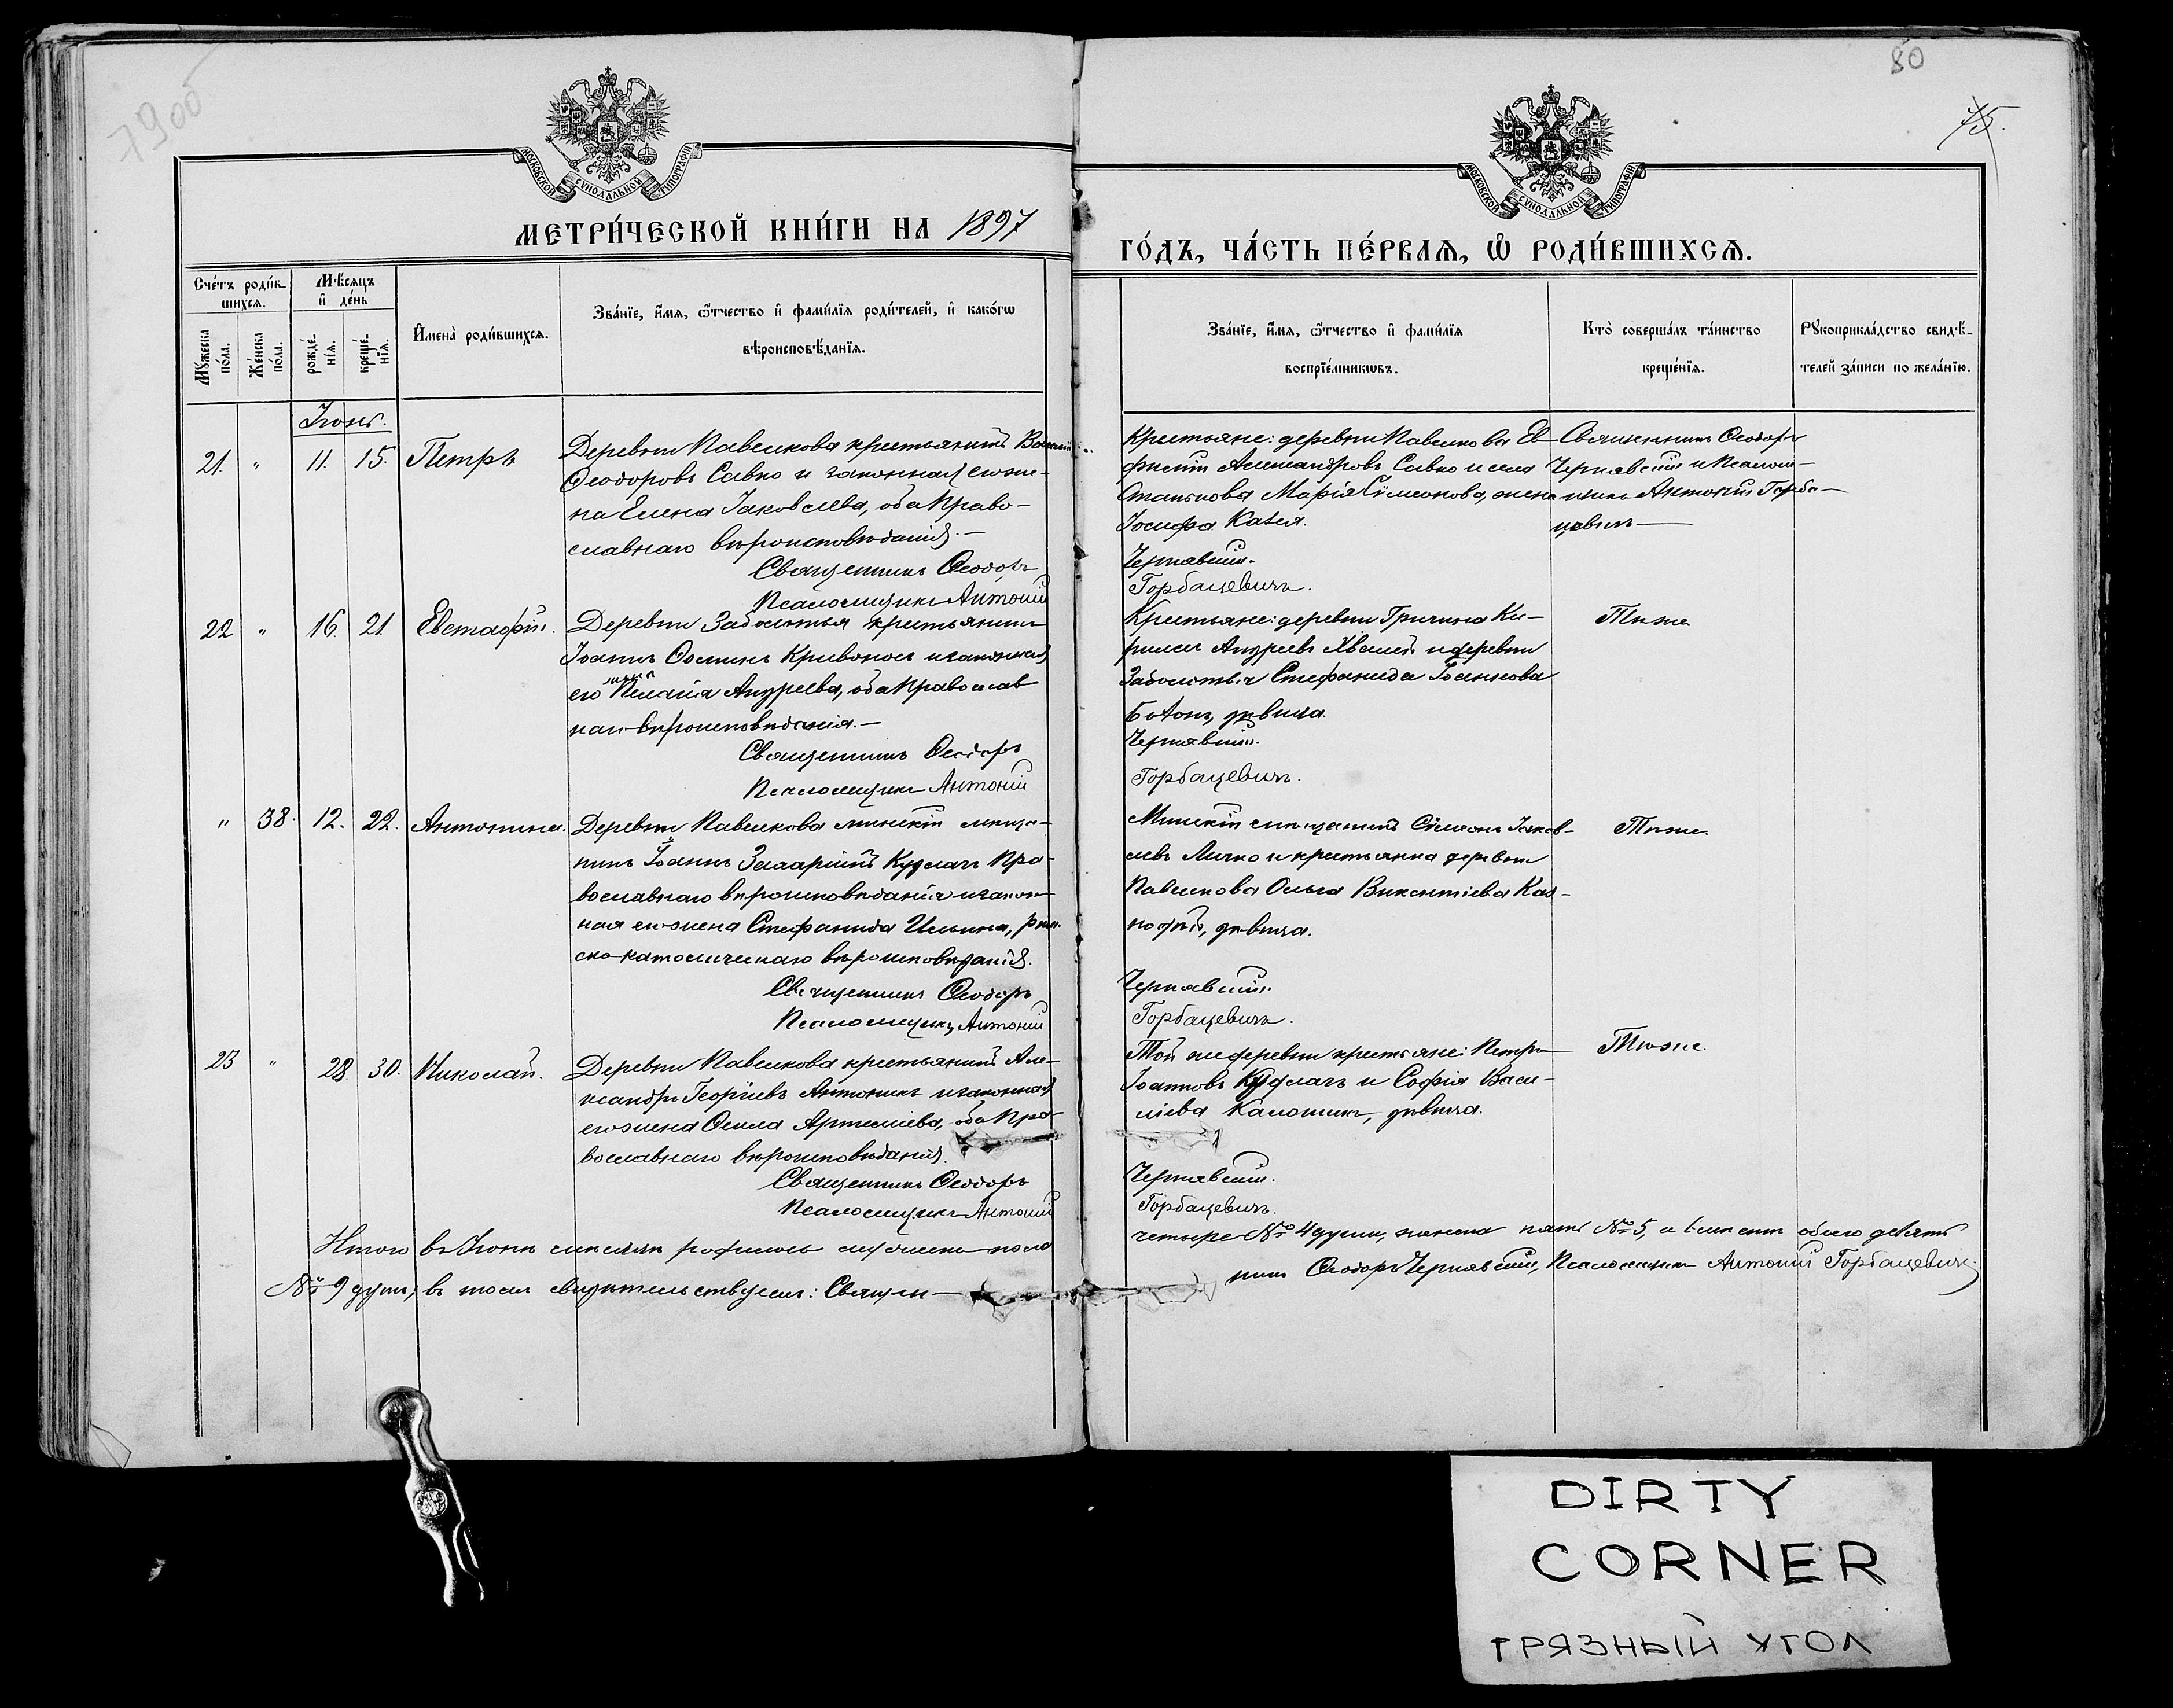 80
75.
МОСКОВСКОЙ СУНОДАЛЬНОЙ ТИПОГРАФІИ
МОСКОВСКОЙ СУНОДАЛЬНОЙ ТИПОГРАФІИ
МЕТРИ́ЧЕСКОЙ КНИ́ГИ НА 1897
ГО́ДЪ, ЧА́СТЬ ПЕ́РВАѦ, Ѡ РОДИ́ВШИХСѦ.
Сче́тъ роди́в-
шихсѧ.
Мѣ́сѧцъ
и де́нь
Мꙋ́жеска по́ла.
Же́нска по́ла.
рожде́-нїѧ.
креще́-нїѧ.
Имена̀ роди́вшихсѧ.
Зва́нїе, и́мѧ, ѻ́тчество и фами́лїѧ роди́телей, и како́гѡ
вѣроисповѣ́данїѧ.
Зва́нїе, и́мѧ, ѻ́тчество и фами́лїѧ
воспрїе́мникѡвъ.
Кто̀ соверша́лъ та́инство
креще́нїѧ.
Рꙋкоприкла́дство свидѣ́-
телей за́писи по жела́нїю.
Іюнь.
21. " 11. 15. Петръ
Деревни Павелкова крестьянинъ
Ѳеодоровъ Савко и законная его же-
на Елена Іаковлева, оба Право-
славнаго вѣроисповѣданія.
Священникъ Ѳеодоръ
Псаломщикъ Антоній
Крестьяне: деревни Павелкова Ев-
фимій Александровъ Савко и села
Станькова Марія Сѵмеонова, жена
Іосифа
Чернявскій.
Горбацевичъ.
Священникъ Ѳеодоръ
Чернявскій и Псалом-
щикъ Антоній Горба-
цевичъ
22 " 16. 21 Евстафій.
Деревни Заболотья крестьянинъ
Іоаннъ Осипов Кривонос и законная
его жена Пелагія Андреева, оба Православ
наго вѣроисповѣданія.
Священникъ Ѳеодоръ
Псаломщикъ Антоній
Крестьяне: деревни Гричина Ки-
риллъ Андреевъ и деревни
Заболотья Стефанида Іоаннова
дѣвица.
Чернявскій.
Горбацевичъ.
Тѣже
" 38. 12. 22. Антонина.
Деревни Павелкова минскій мѣща-
нинъ Іоаннъ Захаріинъ Кудлачъ Пра-
вославнаго вѣроисповѣданія и закон-
ная его жена Стефанида Ильина, рим-
ско-католическаго вѣроисповѣданія.
Священникъ Ѳеодоръ
Псаломщикъ Антоній
Минскій мѣщанинъ Сѵмеонъ Іаков-
левъ Личко и крестьянка деревни
Павелкова Ольга Викентіева
дѣвица.
Чернявскій.
Горбацевичъ.
Тѣже.
23 " 28. 30. Николай.
Деревни Павелкова крестьянинъ Але-
ксандръ Георгіевъ Антоникъ и законная
его жена Ѳекла Артеміева, оба Пра-
вославнаго вѣроисповѣданія.
Священникъ Ѳеодоръ
Псаломщикъ Антоній
Той же деревни крестьяне: Петръ
Іоанновъ Кудлачъ и Софія Васи-
ліева дѣвица.
Чернявскій.
Горбацевичъ.
Тѣже.
Итого въ Іюнѣ мѣсяцѣ родилось мужеска пола
четыре № 4 души, женска пять № 5, а вмѣстѣ обоего девять
№ 9 душъ, въ томъ свидѣтельствуемъ: Священ-
никъ Ѳеодоръ Чернявскій, Псаломщикъ Антоній Горбацевичъ.
DIRTY
CORNER
ГРЯЗНЫЙ УГОЛ